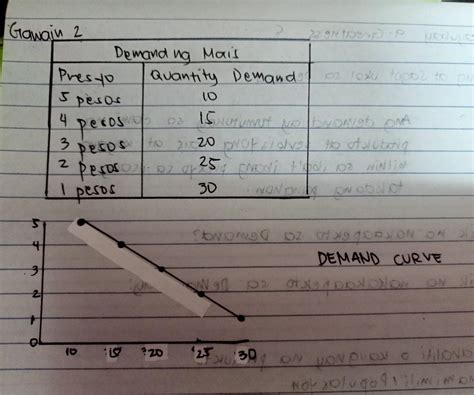 Gawain 2
Demand ng Mais
Presyo Quantity Demand
5 pesos 10
4 pesos 15
3 pesos 20
2 pesos 25
1 pesos 30
5
4
3
2
1
0
10 15 20 25 30
DEMAND CURVE